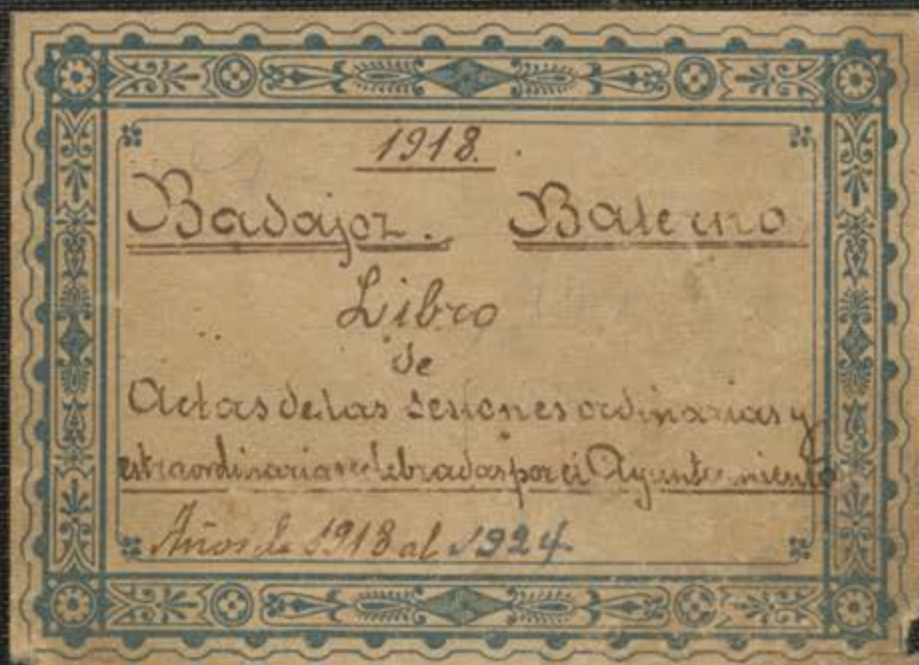 1918.
Badajoz. Baterno
Libro
de
Actas de las sesiones ordinarias y
estraordinarias celebradas por el Ayuntamiento
Años de 1918 al 1924